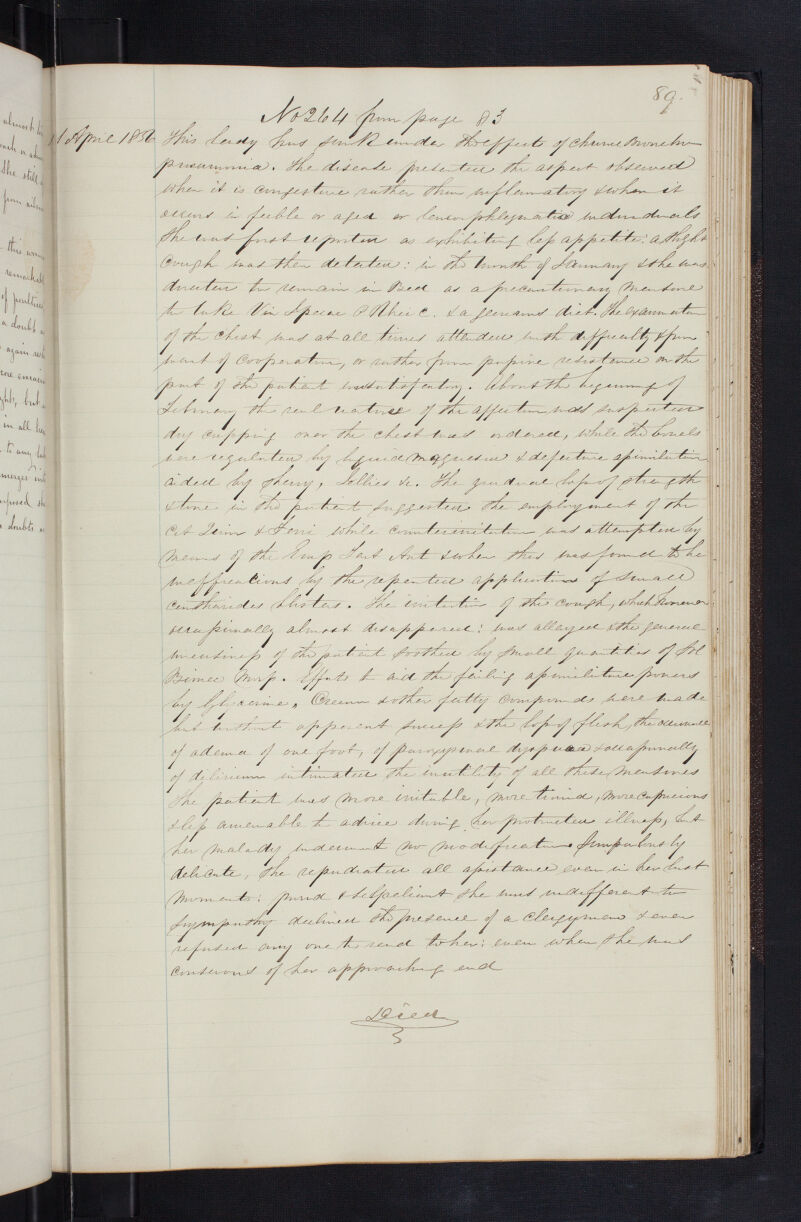 89.
No 264 from page 83
1 April 1856 This lady has sunk under the effects of chronic Broncho
pneumonia. The disease presented the aspect observed
when it is congestive rather than inflammatory & when it
occurs in feeble or aged or leucophlegmatic individuals
She was first reported as exhibiting less appetite: a slight
cough was then detected: in the month of January & she was
directed to remain in Bed as a precautionary measure
to take Vin Ipecac & Rhei c. & a generous diet. The examination
of the chest was at all times attended with difficulty & from
want of cooperation, or rather from passive resistance on the
part of the patient unsatisfactory. About the beginning of
February the real nature of the affection was suspected
dry cupping over the chest was ordered, while the bowels
were regulated by liquid magnesia & defective assimilation
aided by sherry, Jellies &c. The gradual loss of strength
& tone in the patient suggested the employment of the
Cit Quin & Ferri while counterirritation was attempted by
means of the Emp Tart Ant & when this was found to be
inefficacious by the repeated application of small
cantharides blisters. The irritation of the cough, which however
occasionally almost disappeared: was allayed & the general
uneasiness of the patient soothed by small quantities of Sol
Bimec Morp. Efforts to aid the failing assimilative powers
by Glycerine, Cream & other fatty compounds were made
but without apparent success & the loss of flesh, the occurrence
of oedema of one foot, of paroxysmal dyspnoea & occasionally
of delirium intimated the inutility of all these measures
The patient was more irritable, more timid, more capricious
& less amenable to advice during her protracted illness, but
her malady underwent no modification. Scrupulously
delicate, she repudiated all assistance even in her last
moments: proud & selfreliant she was indifferent to
sympathy declined the presence of a clergyman & even
refused any one to read to her: even when she was
conscious of her approaching end
Died